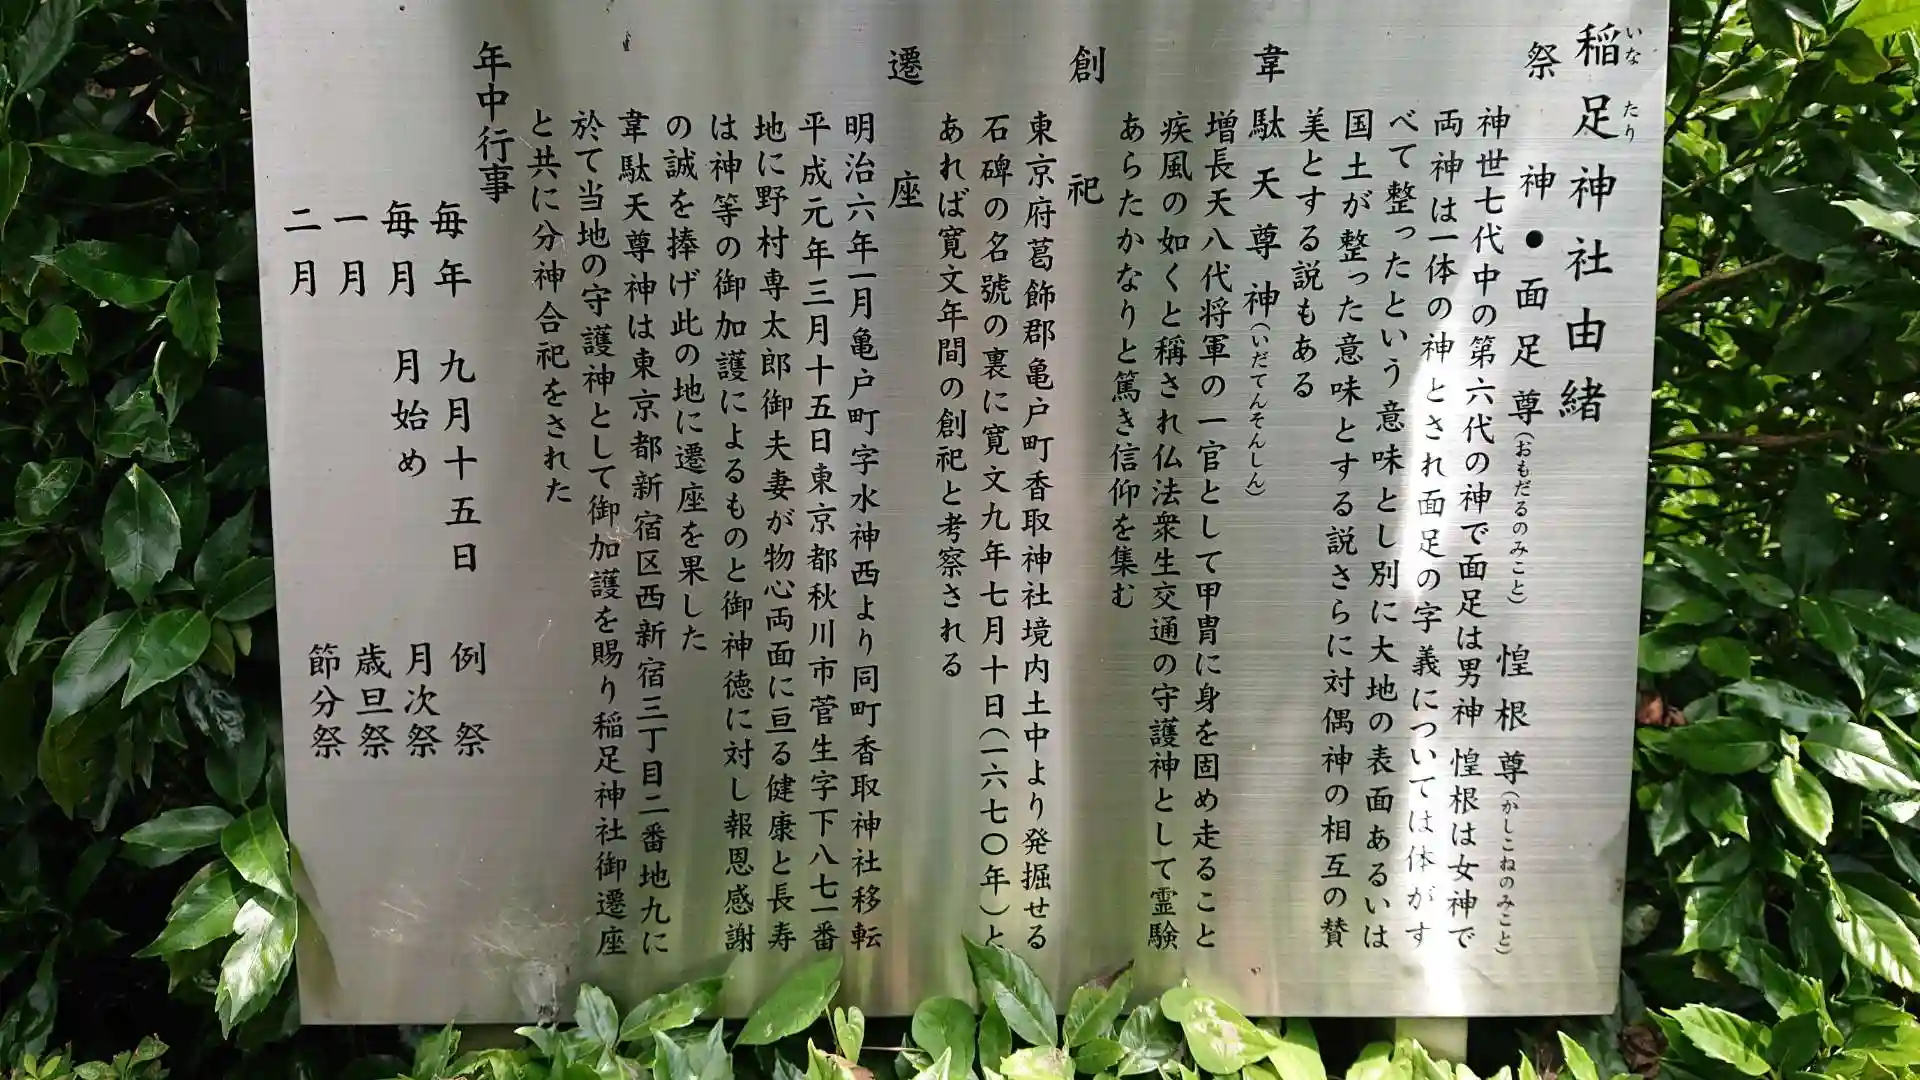 稲足神社由緒
いなたり
祭神●面足尊(おもだるのみこと) 惶根尊(かしこねのみこと)
神世七代中の第六代の神で面足は男神 惶根は女神で
両神は一体の神とされ面足の字義については体がす
べて整ったという意味とし別に大地の表面あるいは
国土が整った意味とする説さらに対偶神の相互の賛
美とする説もある
韋駄天尊神(いだてんそんしん)
増長天八代将軍の一官として甲冑に身を固め走ること
疾風の如くと稱され仏法衆生交通の守護神として霊験
あらたかなりと篤き信仰を集む
創祀
東京府葛飾郡亀戸町香取神社境内土中より発掘せる
石碑の名號の裏に寛文九年七月十日(一六七〇年)と
あれば寛文年間の創祀と考察される
遷座
明治六年一月亀戸町字水神西より同町香取神社移転
平成元年三月十五日東京都秋川市菅生字下八七一番
地に野村専太郎御夫妻が物心両面に亘る健康と長寿
は神等の御加護によるものと御神徳に対し報恩感謝
の誠を捧げ此の地に遷座を果した
韋駄天尊神は東京都新宿区西新宿三丁目二番地九に
於て当地の守護神として御加護を賜り稲足神社御遷座
と共に分神合祀をされた
年中行事
毎年 九月十五日 例祭
毎月 月始め 月次祭
一月 歳旦祭
二月 節分祭